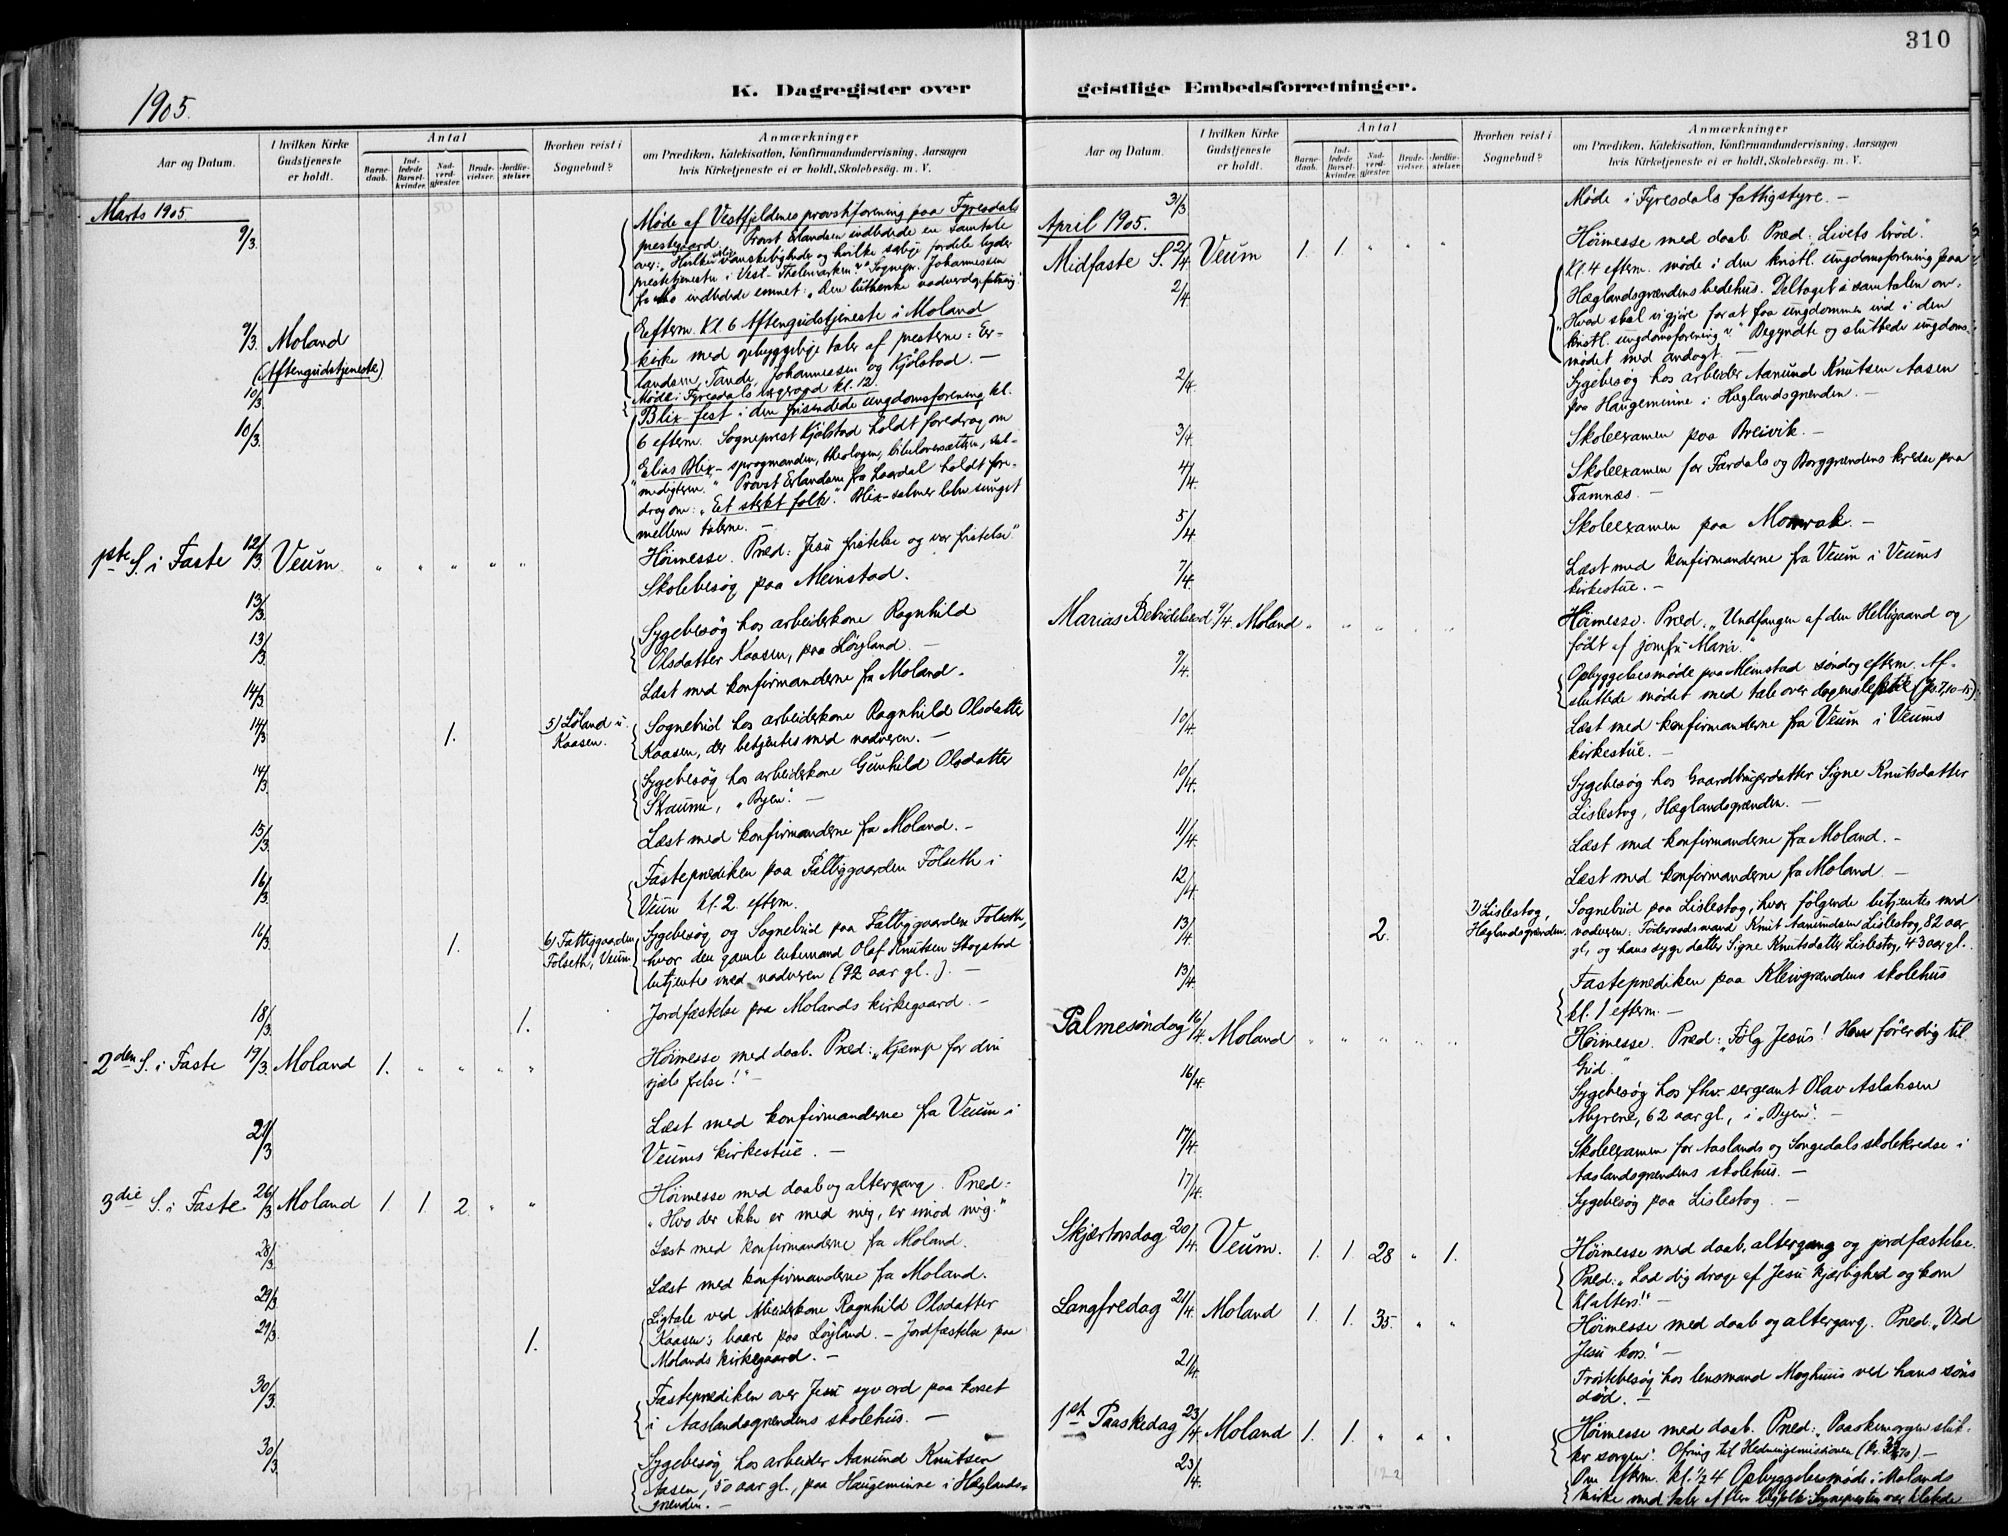 310
K. Dagregister over geistlige Embedsforretninger.
1905.
Aar og Datum.
I hvilken Kirke Gudstjeneste er holdt.
Antal
Barnedaab.
Indledede Barselkvinder.
Nadverdgjæster.
Brudevielser.
Jordfæstelser.
Hvorhen reist i Sognebud?
Anmærkninger
om Prædiken, Katekisation, Konfirmandundervisning, Aarsagen
hvis Kirketjeneste ei er holdt, Skolebesøg. m. V.
Marts 1905
9/3. Møde af Vestfjeldenes provstiforening paa Fyresdals
prestegaard. Provst Erlandsen indledede en samtale
over: "Hvilke vanskeligheder og hvilke sælige fordele byder
prestetjenesten i Vest. Thelemarken?" Sognepr. Johannessen
fra Mo indledede emnet: "Den lutherske nadverdopfatning."
9/3. Moland
(Aftengudstjeneste)
Eftern. Kl. 6 Aftengudstjeneste i Moland
kirke med opbyggelige taler af presterne: Er-
landsen, Tande, Johannessen og Kjølstad. —
10/3. Møde i Fyresdals lægeraad kl. 12.
10/3. Blix-fest i den frisindede ungdomsforening kl.
6 eftern. Sogneprest Kjølstad holdt foredrag om
"Elias Blix – sprogmanden, theologen, bibeloversætteren, sal-
medigteren." Provst Erlandsen fra Laardal holdt fore-
drag om: "Et sterkt folk." Blix-salmer blev sunget
mellem talerne. —
1ste S. i Faste 12/3. Veum " " " " " Høimesse. Præd: Jesu fristelse og vor fristelse."
13/3. Skolebesøg paa Meinstad.
13/3. Sygebesøg hos arbeiderkone Ragnhild
Olsdatter Kaasen, paa Løyland. —
14/3. Læst med konfirmanderne fra Moland. -
14/3. 1. 5) Løland u. Kaasen. Sognebud hos arbeiderkone Ragnhild Olsdatter
Kaasen, der betjentes med nadveren. —
14/3. Sygebesøg hos arbeiderkone Gunhild Olsdatter
Straume, "Byen". —
15/3. Læst med konfirmanderne fra Moland. -
16/3. Fasteprædiken paa Fattiggaarden Folseth i
Veum kl. 2 eftern.
16/3. 1. 6) Fattiggaarden Folseth, Veum. Sygebesøg og Sognebud paa Fattiggaarden Folseth,
hvor den gamle enkemand Olaf Knutsen Skogstad
betjentes med nadveren (92 aar gl.). —
18/3. 1. Jordfæstelse paa Molands kirkegaard. -
2den S. i Faste 19/3. Moland 1. " " " " Høimesse med daab. Præd: "Kjæmp for din
sjæls frelse!" -
21/3 Læst med konfirmanderne fra Veum i
Veums kirkestue. -
3die S. i Faste 26/3 Moland 1. 1 2. " " Høimesse med daab og altergang. Præd:
"Hvo der ikke er med mig, er imod mig."
28/3. Læst med konfirmanderne fra Moland.
29/3. Læst med konfirmanderne fra Moland.
29/3. 1. Ligtale ved Arbeiderkone Ragnhild Olsdatter
Kaasen's baare paa Løyland. – Jordfæstelse paa
Molands kirkegaard. —
30/3. Fasteprædiken over Jesu syv ord paa korset
i Aaslandsgrændens skolehus. —
30/3. Sygebesøg hos arbeider Aanund Knutsen
Aasen, 50 aar gl., paa Haugeminne i Hæglands-
grænden. —
Aar og Datum.
I hvilken Kirke Gudstjeneste er holdt.
Antal
Barnedaab.
Indledede Barselkvinder.
Nadverdgjæster.
Brudevielser.
Jordfæstelser.
Hvorhen reist i Sognebud?
Anmærkninger
om Prædiken, Katekisation, Konfirmandundervisning, Aarsagen
hvis Kirketjeneste ei er holdt, Skolebesøg. m. V.
31/3 Møde i Fyresdals fattigstyre. —
April 1905.
Midfaste S. 2/4 Veum 1. 1. " " " Høimesse med daab. Præd: "Livets brød."
2/4. Kl. 4 eftern. møde i den kristl. ungdomsforening paa
Hæglandsgrændens bedehus. Deltaget i samtalen om:
"Hvad skal vi gjøre for at faa ungdommen ind i den
kristl. ungdomsforening?" Begyndte og sluttede ungdoms-
mødet med andagt. —
2/4. Sygebesøg hos arbeider Aanund Knutsen Aasen
paa Haugeminne i Hæglandsgrænden. —
3/4. Skoleexamen paa Breivik. —
4/4. Skoleexamen for Fardals og Borggrændens kredse paa
Framnæs. —
5/4. Skoleexamen paa Momrak. —
7/4. Læst med konfirmanderne fra Veum i Veums
kirkestue. -
Marias Bebudelsesd. 9/4. Moland " " " " " Høimesse. Præd. "Undfangen af den Helligaand og
født af jomfru Maria."
9/4. Opbyggelsesmøde paa Meinstad søndag eftern. Af-
sluttede mødet med tale over dagens lektie (Es. 7, 10-15).
10/4. Læst med konfirmanderne fra Veum i Veums
kirkestue. —
10/4. Sygebesøg hos Gaardbrugerdatter Signe Knutsdatter
Lislestog, Hæglandsgrænden. —
11/4. Læst med konfirmanderne fra Moland. -
12/4. Læst med konfirmanderne fra Moland —
13/4. 2. 7) Lislestog, Hæglandsgrænden. Sognebud paa Lislestog, hvor følgende betjentes med
nadveren: Føderaadsmand Knut Aanundsen Lislestog, 82 aar
gl., og hans syge datter Signe Knutsdatter Lislestog, 43 aar gl. -
13/4. Fasteprædiken paa Kleivgrændens skolehus
kl. 1 eftern. —
Palmesøndag 16/4. Moland " " " " " Høimesse. Præd: "Følg Jesus! Han fører dig til
Gud."
16/4. Sygebesøg hos fhv. sergeant Olav Aslaksen
Myrene, 62 aar gl., i "Byen". —
17/4. Skoleexamen for Aaslands og Songedals skolekredse i
Aaslandsgrændens skolehus. —
17/4. Sygebesøg paa Lislestog. —
Skjærtorsdag 20/4. Veum. 1. 1. 28 " 1. Høimesse med daab, altergang og jordfæstelse.
Præd: "Lad dig drage af Jesu kjærlighed og kom
til alters!" —
Langfredag 21/4. Moland 1. 1. 35. " " Høimesse med daab og altergang. Præd. "Ved
Jesu kors." —
21/4. Trøstebesøg hos lensmand Moghuus ved hans søns
død. —
1ste Paaskedag 23/4 Moland 1. 1. " " " Høimesse med daab. Præd: "Paaskemorgen sluk-
ker sorgen". Ofring til Hedningemissionen (kr. 32,70) —
23/4. Om eftern. kl. 1/2 4 Opbyggelsesmøde i Molands
kirke med taler af flere lægfolk. Sognepresten var tilstede